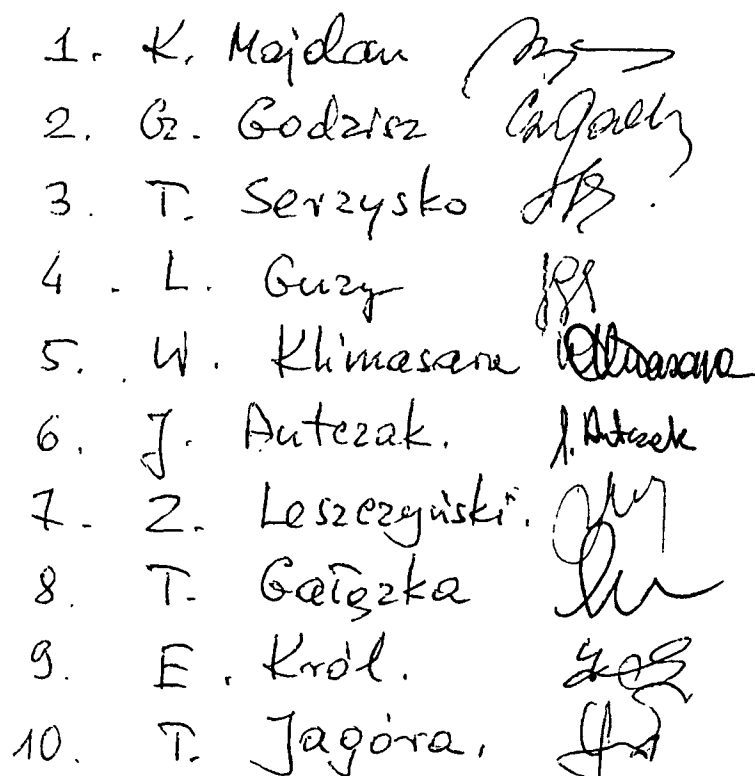 1. K. Majdan
2. Gz. Godzisz
3. T. Serzysko
4. L. Guzy
5. W. Klimasara Klimasara
6. J. Antczak. J. Antczak
7. Z. Leszczyński.
8. T. Gałązka
9. E. Król.
10. T. Jagóra.